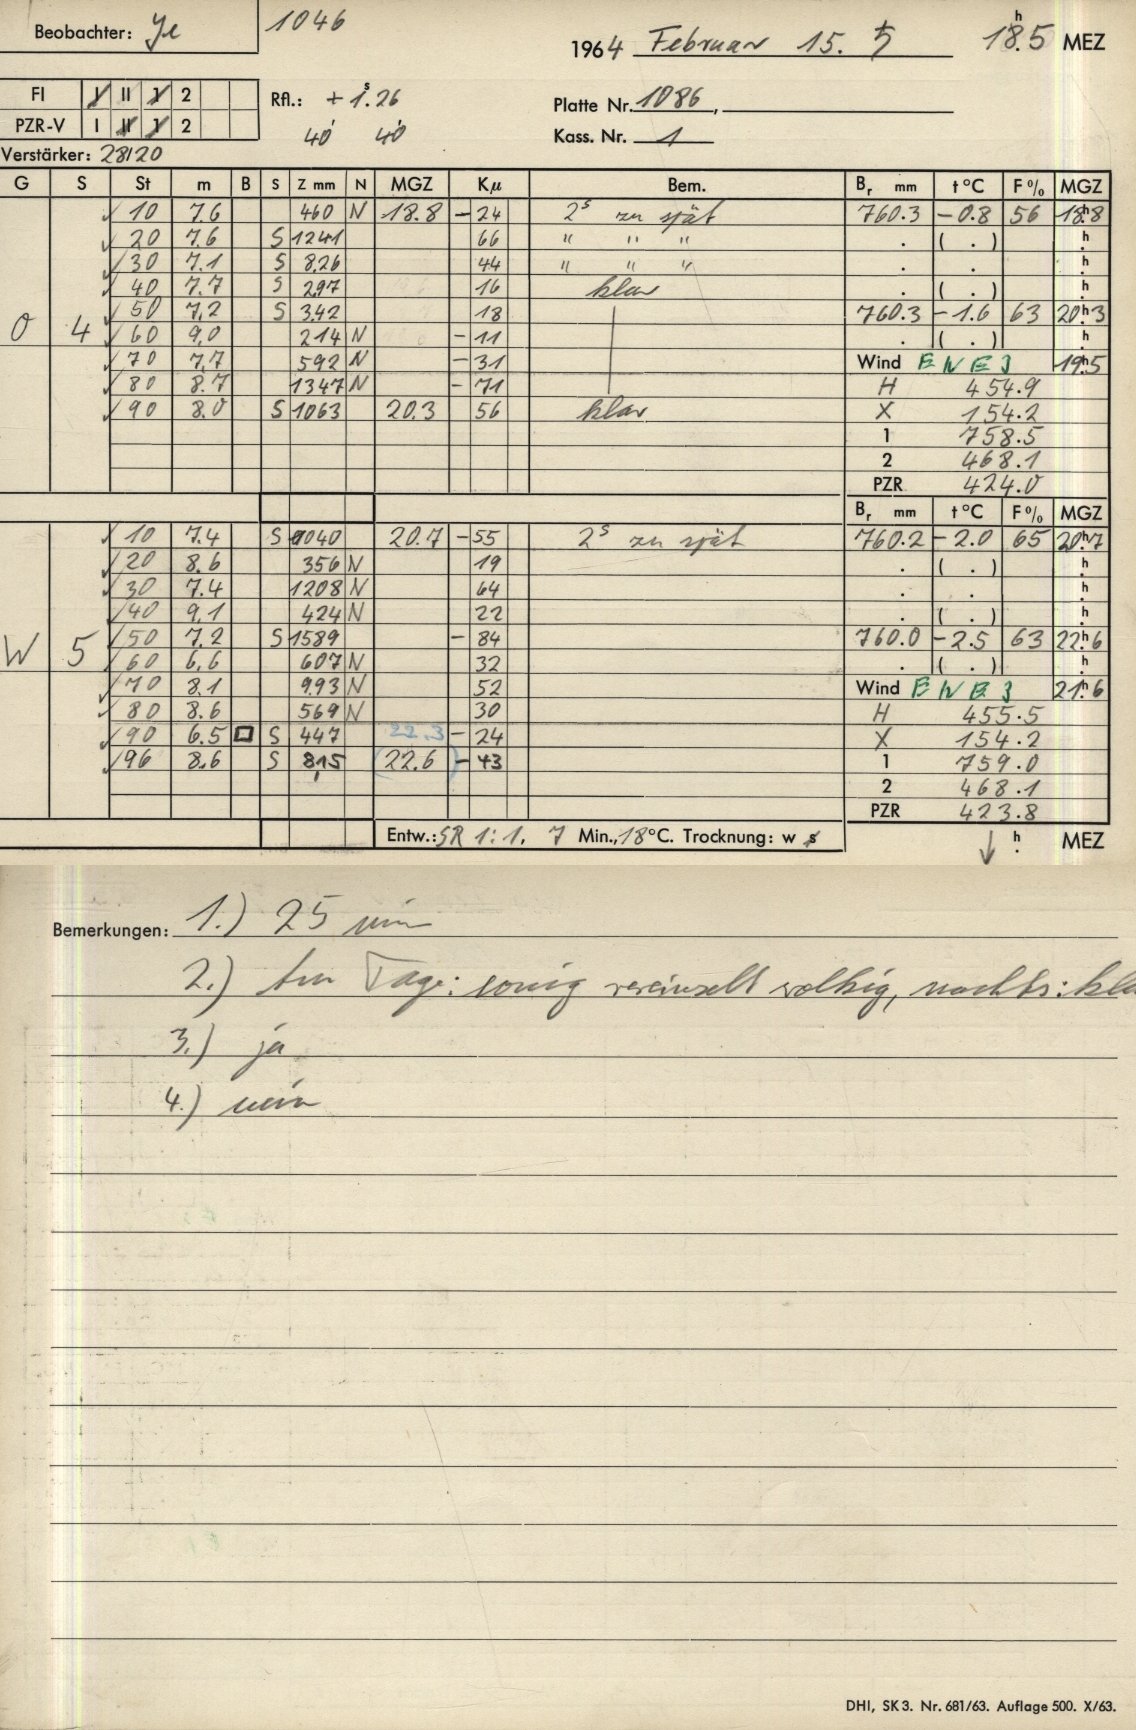 Beobachter: Je 1046 1964 Februar 15. ♄ 18h.5 MEZ
FI I II 1 2 Rfl.: + 1s.26 Platte Nr. 1086,
PZR-V I II 1 2 40 40 Kass. Nr. 1
Verstärker: 28/20
G S St m B S Z mm N MGZ Kμ Bem. Br mm t °C F % MGZ
10 7.6 460 N 18.8 - 24 2s zu spät 760.3 - 0.8 56 18h.8
20 7.6 S 1241 66 " " " . ( . ) h.
30 7.1 S 8.26 44 " " " . . h.
40 7.7 S 297 16 klar . ( . ) h.
50 7.2 S 342 18 760.3 - 1.6 63 20h.3
O 4 60 9.0 214 N - 11 . ( . ) h.
70 7.7 592 N - 31 Wind ENE 3 19h.5
80 8.7 1347 N - 71 H 454.9
90 8.0 S 1063 20.3 56 klar X 154.2
1 758.5
2 468.1
PZR 424.0
Br mm t °C F % MGZ
10 7.4 S 1040 20.7 - 55 2s zu spät 760.2 - 2.0 65 20h.7
20 8.6 356 N 19 . ( . ) h.
30 7.4 1208 N 64 . . h.
40 9.1 424 N 22 . ( . ) h.
50 7.2 S 1589 - 84 760.0 - 2.5 63 22h.6
W 5 60 6.6 607 N 32 . ( . ) h.
70 8.1 993 N 52 Wind ENE 3 21h.6
80 8.6 569 N 30 H 455.5
90 6.5 □ S 447 22.3 - 24 X 154.2
96 8.6 S 815 (22.6) - 43 1 759.0
2 468.1
PZR 423.8
Entw.: SR 1:1. 7 Min., 18 °C. Trocknung: w s h. MEZ
Bemerkungen: 1.) 25 min
2.) Am Tage: sonnig vereinzelt wolkig, nachts:
3.) ja
4.) nein
DHI, SK 3. Nr. 681/63. Auflage 500. X/63.